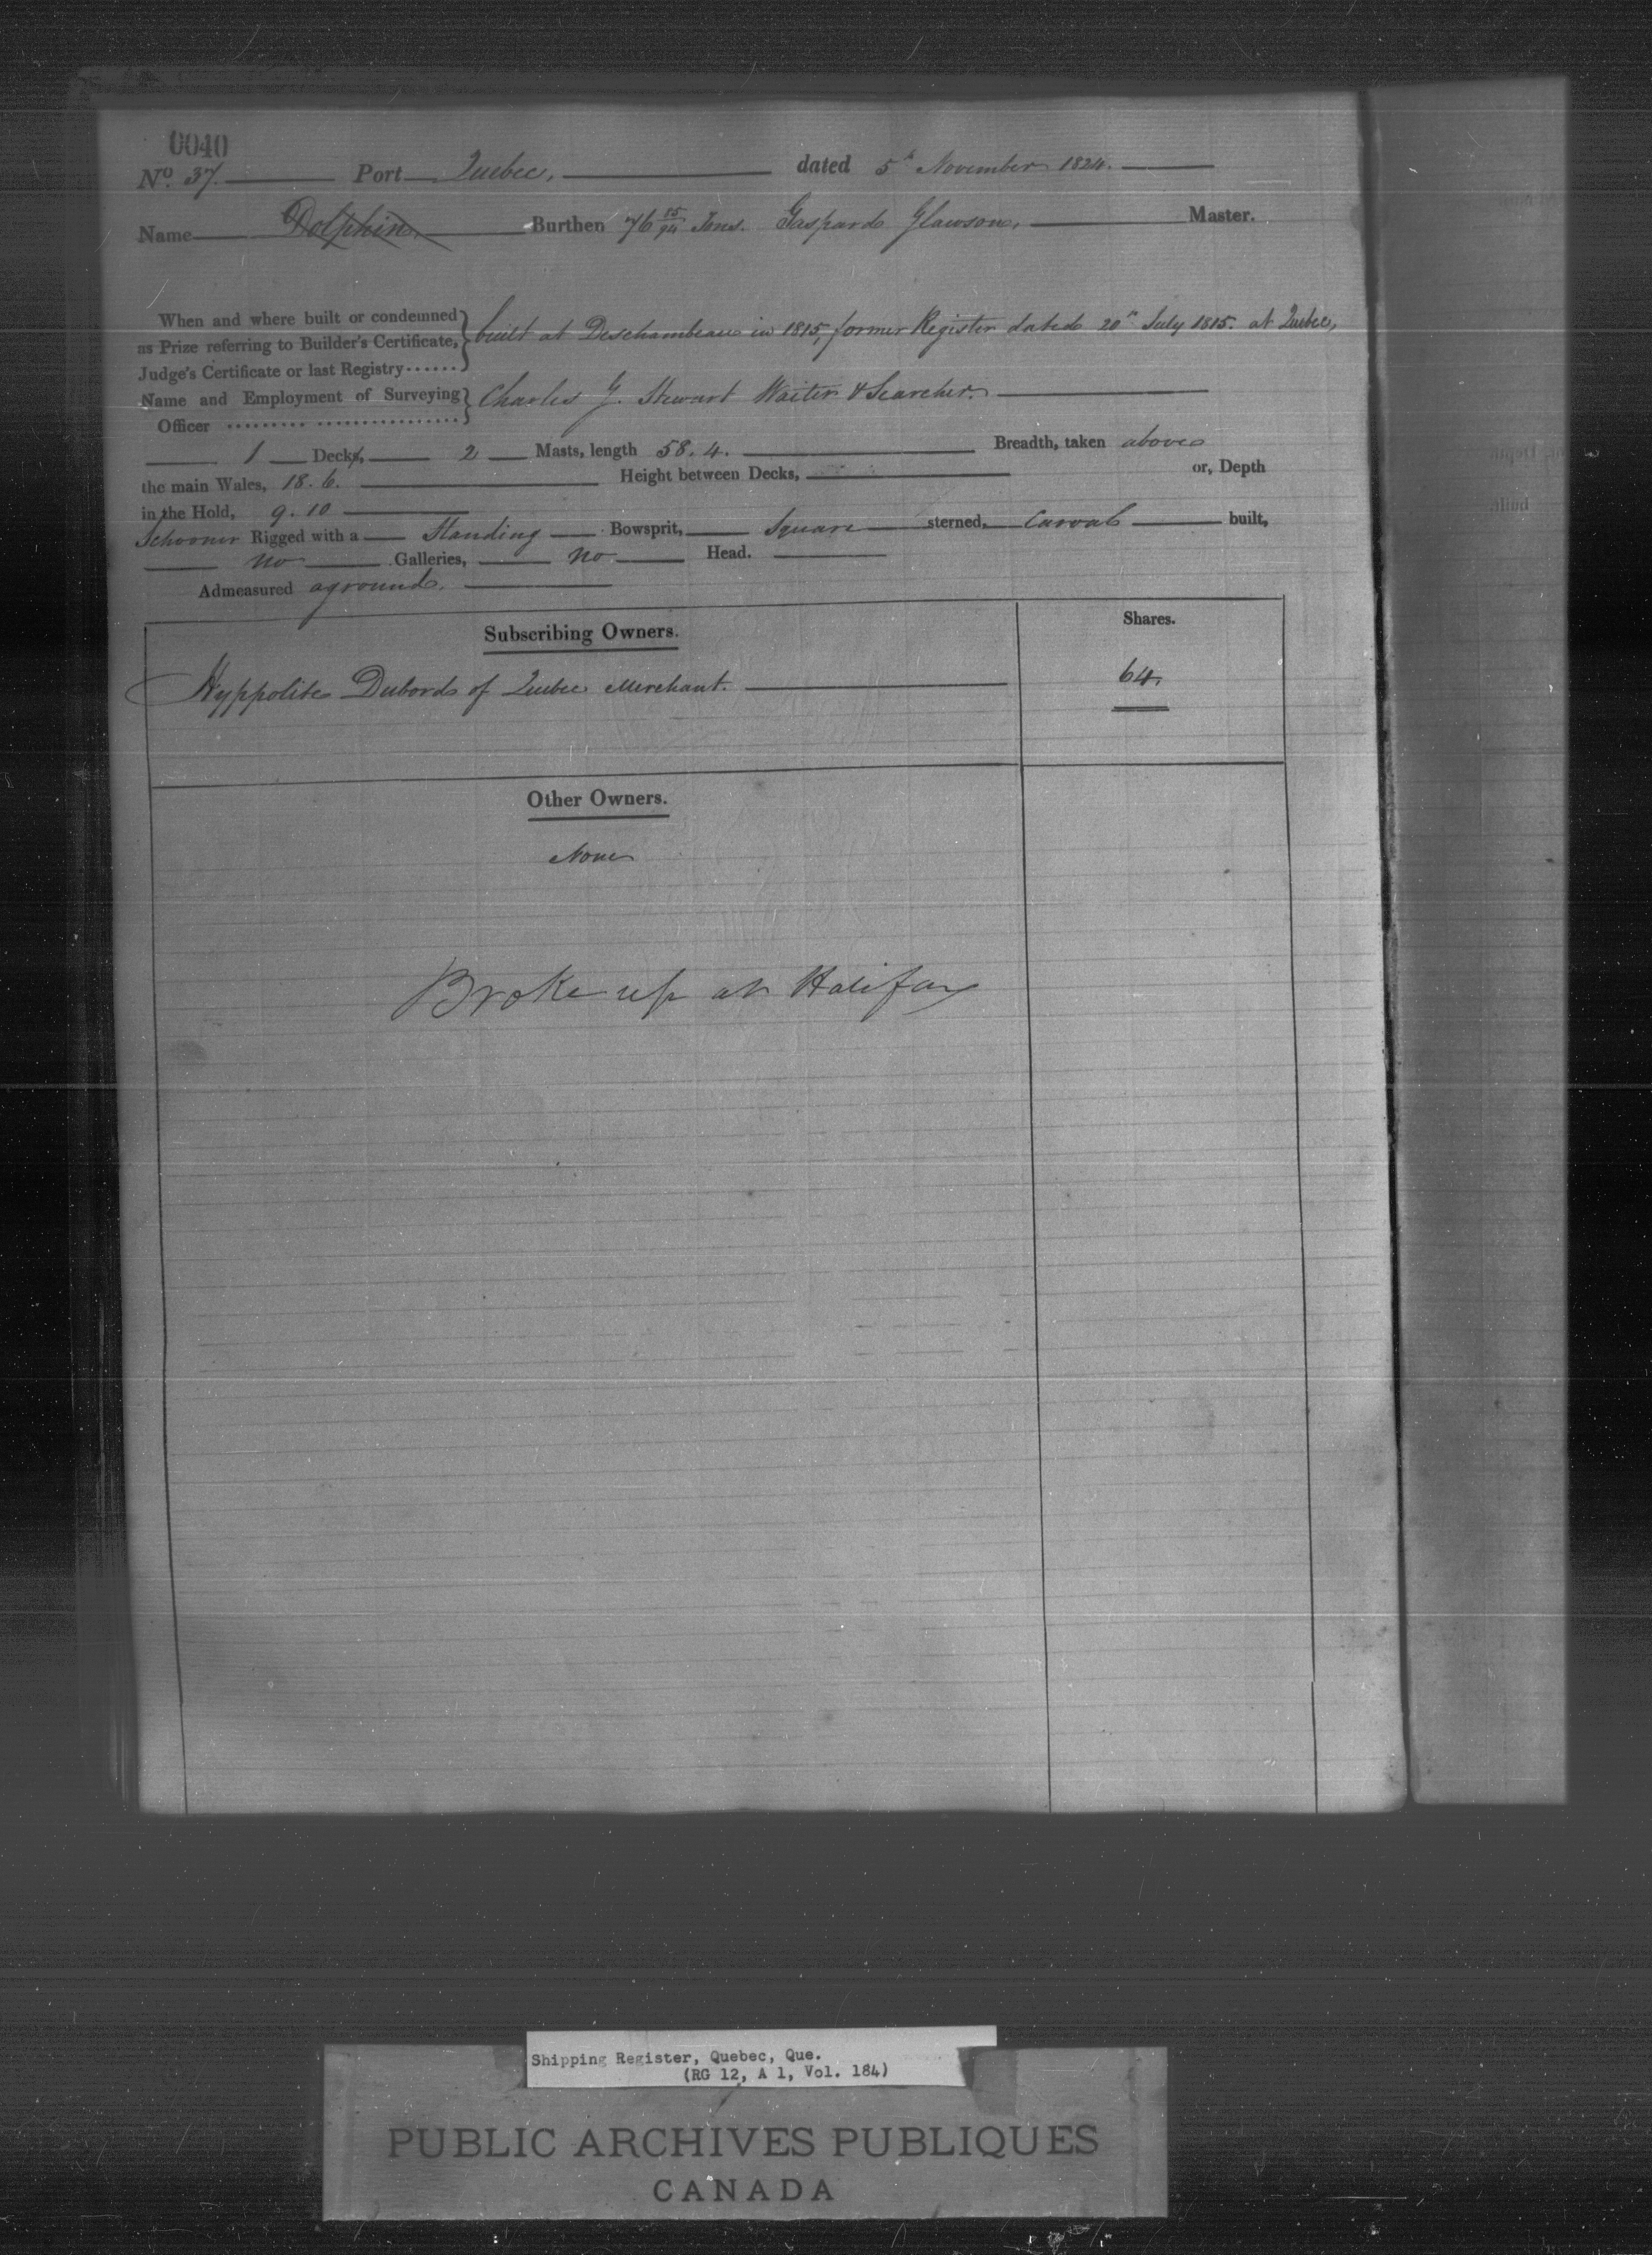 0040
No. 37. Port Quebec, dated 5th November 1824.
Name Dolphin Burthen 76 85/94 Tons. Gaspard Glawson, Master.
When and where built or condemned
as Prize referring to Builder's Certificate,
Judge's Certificate or last Registry......
built at Deschambeau in 1815, former Register dated 20th July 1815. at Quebec,
Name and Employment of Surveying
Officer
Charles G. Stewart Waiter & Searcher.
1 Decks, 2 Masts, length 58. 4. Breadth, taken above
the main Wales, 18. 6. Height between Decks, or, Depth
in the Hold, 9. 10
Schooner Rigged with a Standing Bowsprit, Square sterned, Carval built,
no Galleries, no Head.
Admeasured aground.
Subscribing Owners. Shares.
Hyppolite Dubord of Quebec Merchant. 64.
Other Owners.
None
Broke up at Halifax
Shipping Register, Quebec, Que.
(RG 12, A 1, Vol. 184)
PUBLIC ARCHIVES PUBLIQUES
CANADA